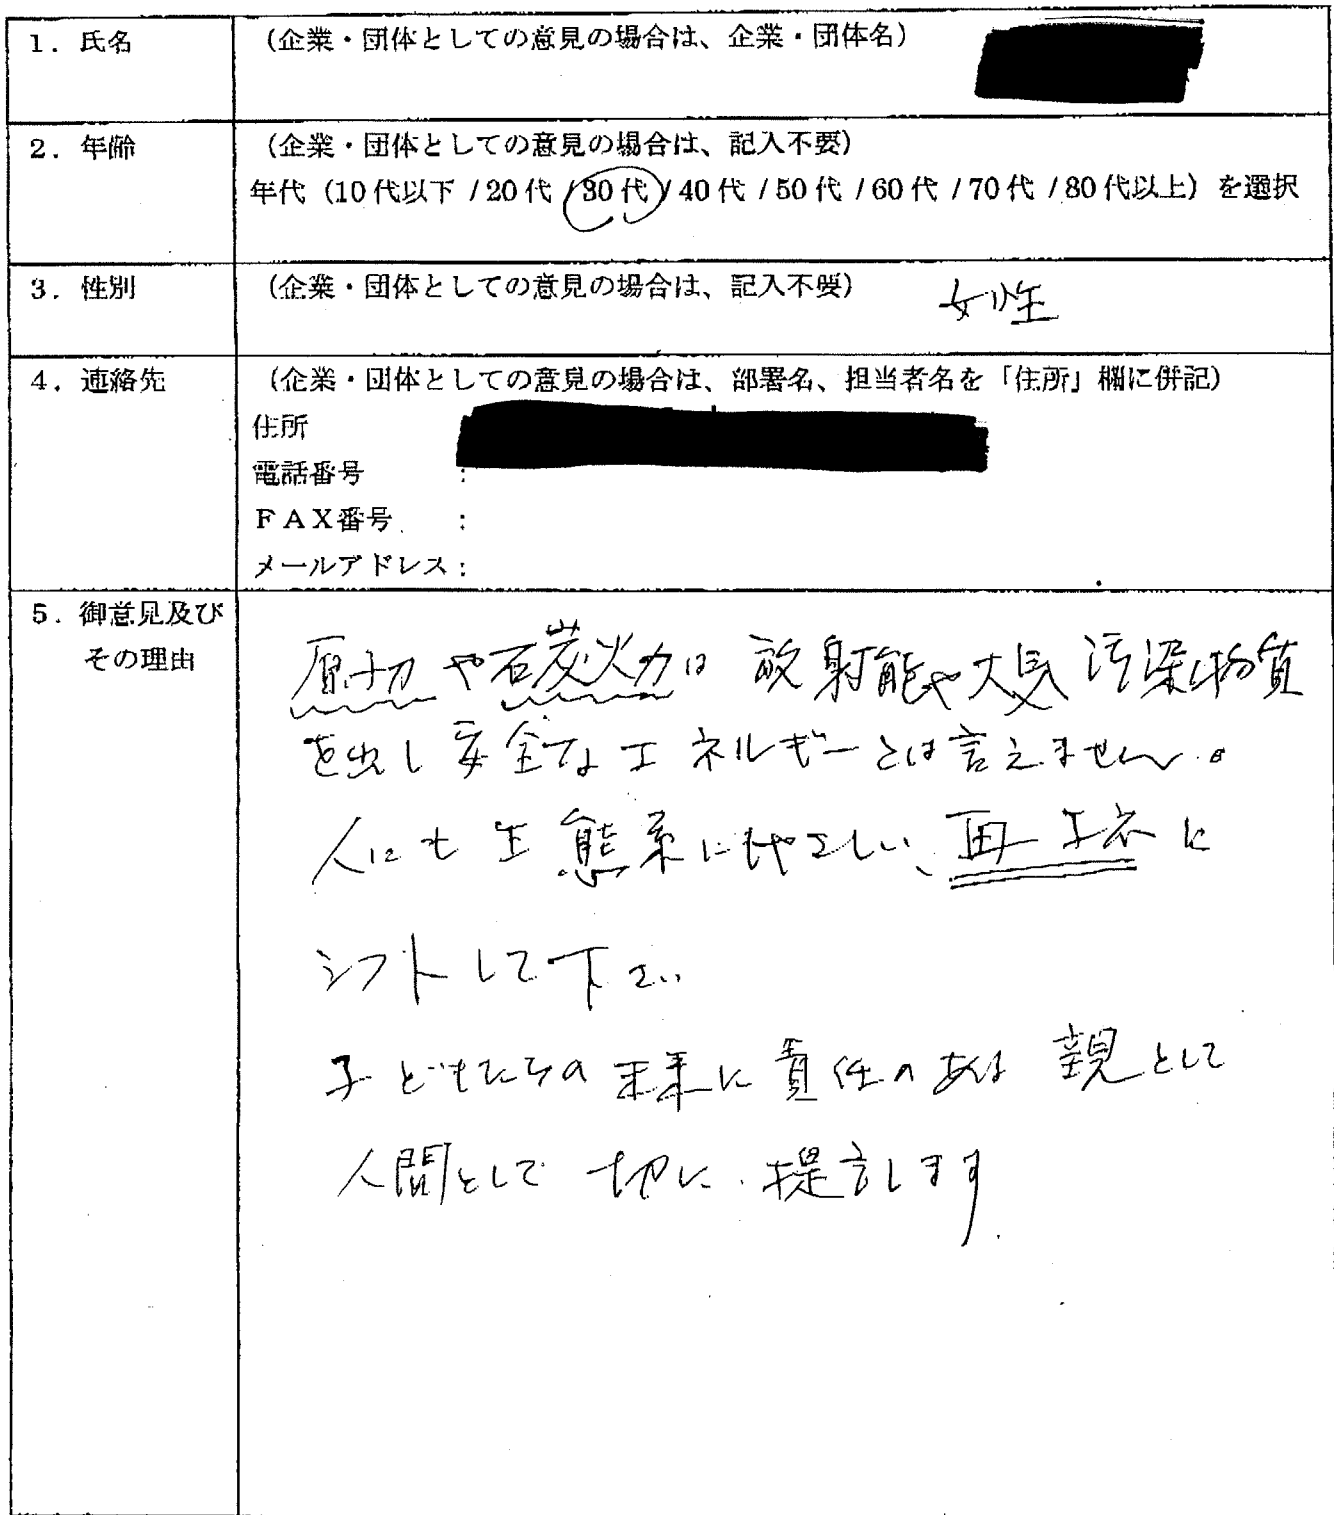 1. 氏名
(企業・団体としての意見の場合は、企業・団体名)
2. 年齢
(企業・団体としての意見の場合は、記入不要)
年代(10代以下 / 20代 / 30代 / 40代 / 50代 / 60代 / 70代 / 80代以上)を選択
3. 性別
(企業・団体としての意見の場合は、記入不要) 女性
4. 連絡先
(企業・団体としての意見の場合は、部署名、担当者名を「住所」欄に併記)
住所
電話番号 :
FAX番号 :
メールアドレス:
5. 御意見及び
その理由
や石炭火力は 放射能や大気汚染物質
を出し安全なエネルギーとは言えません。
人にも生態系にもやさしい、再エネに
シフトして下さい
子どもたちの未来に責任のある 親として
人間として 切に 提言します